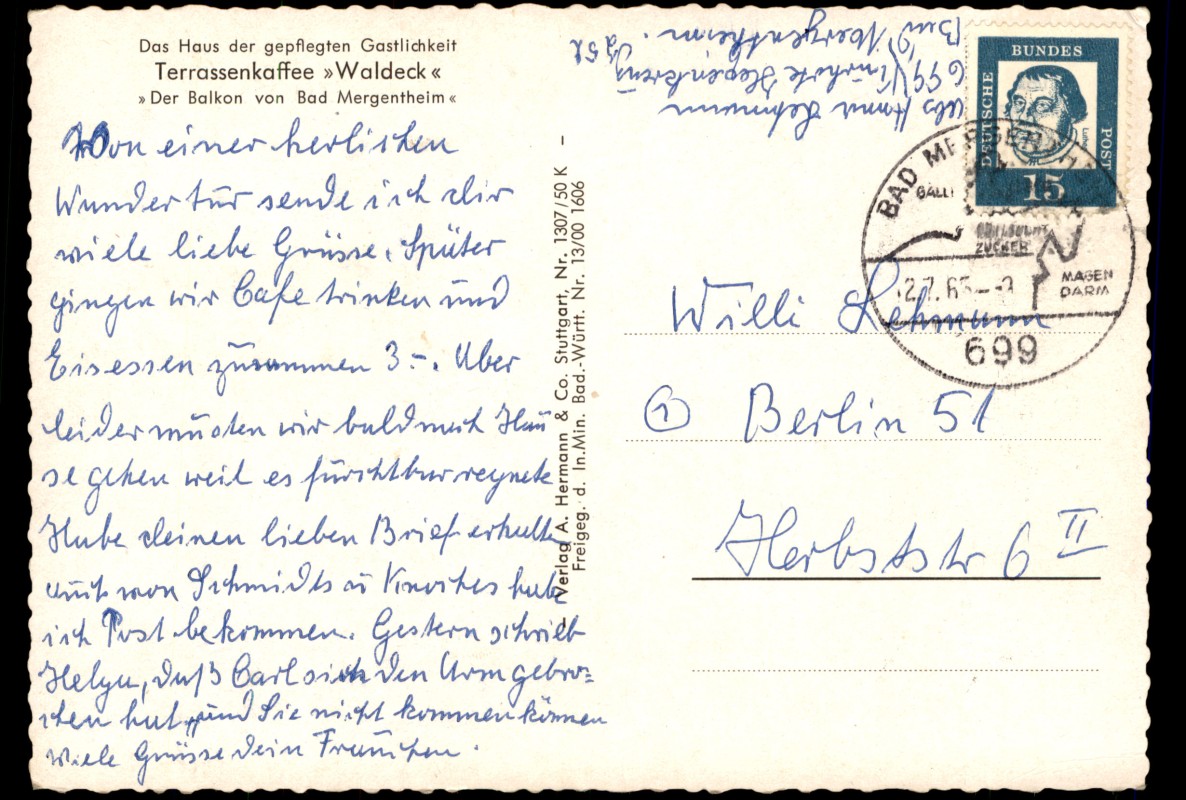 Das Haus der gepflegten Gastlichkeit
Terrassenkaffee »Waldeck«
»Der Balkon von Bad Mergentheim«
Von einer herlichen
Wundertur sende ich dir
viele liebe Grüsse. Später
gingen wir Cafe trinken und
Eisessen zusammen 3.-. Aber
leider musten wir bald nach Hau
se gehen weil es fürchtbar regnete
Habe deinen lieben Brief erhalten
auch von Schmidts u habe
ich Post bekommen. Gestern schrieb
Helga, daß Carl sich den Arm gebro=
chen hat, und Sie nicht kommen können
viele Grüsse dein Frauchen.
– Verlag A. Hermann & Co. Stuttgart, Nr. 1307/50 K –
Freigeg. d. In.Min. Bad.-Württ. Nr. 13/00 1606
Abs Lehmann
699
Bad Mergentheim.
DEUTSCHE BUNDES POST
Luther
15
BAD MERGENTH
GALL
ZUCKER
MAGEN
DARM
699
Willi Lehmann
① Berlin 51
Herbststr 6 II